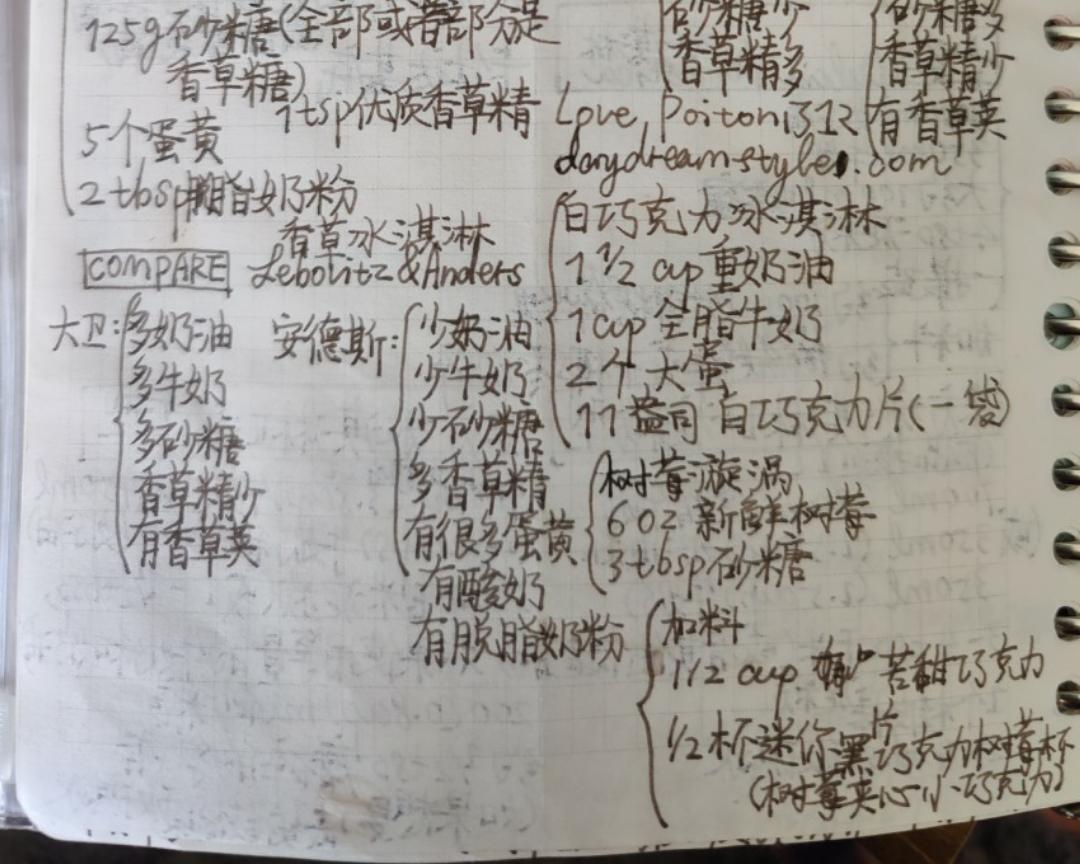 125g砂糖(全部或者部分是
香草糖)
1tsp优质香草精
5个蛋黄
2tbsp脱脂奶粉
砂糖少
香草精多
砂糖多
香草精少
有香草荚
Love, Poiton1312
daydream-style.com
香草冰淇淋
COMPARE Lebolitz & Anders
大卫:
多奶油
多牛奶
多砂糖
香草精少
有香草荚
安德斯:
少奶油
少牛奶
少砂糖
多香草精
有很多蛋黄
有酸奶
有脱脂奶粉
白巧克力冰淇淋
1 1/2 cup 重奶油
1cup 全脂牛奶
2个大蛋
11盎司 白巧克力片(一袋)
树莓漩涡
6oz 新鲜树莓
3tbsp砂糖
加料
1/2 cup 苦甜巧克力
片
1/2杯迷你黑巧克力树莓杯
(树莓夹心小巧克力)